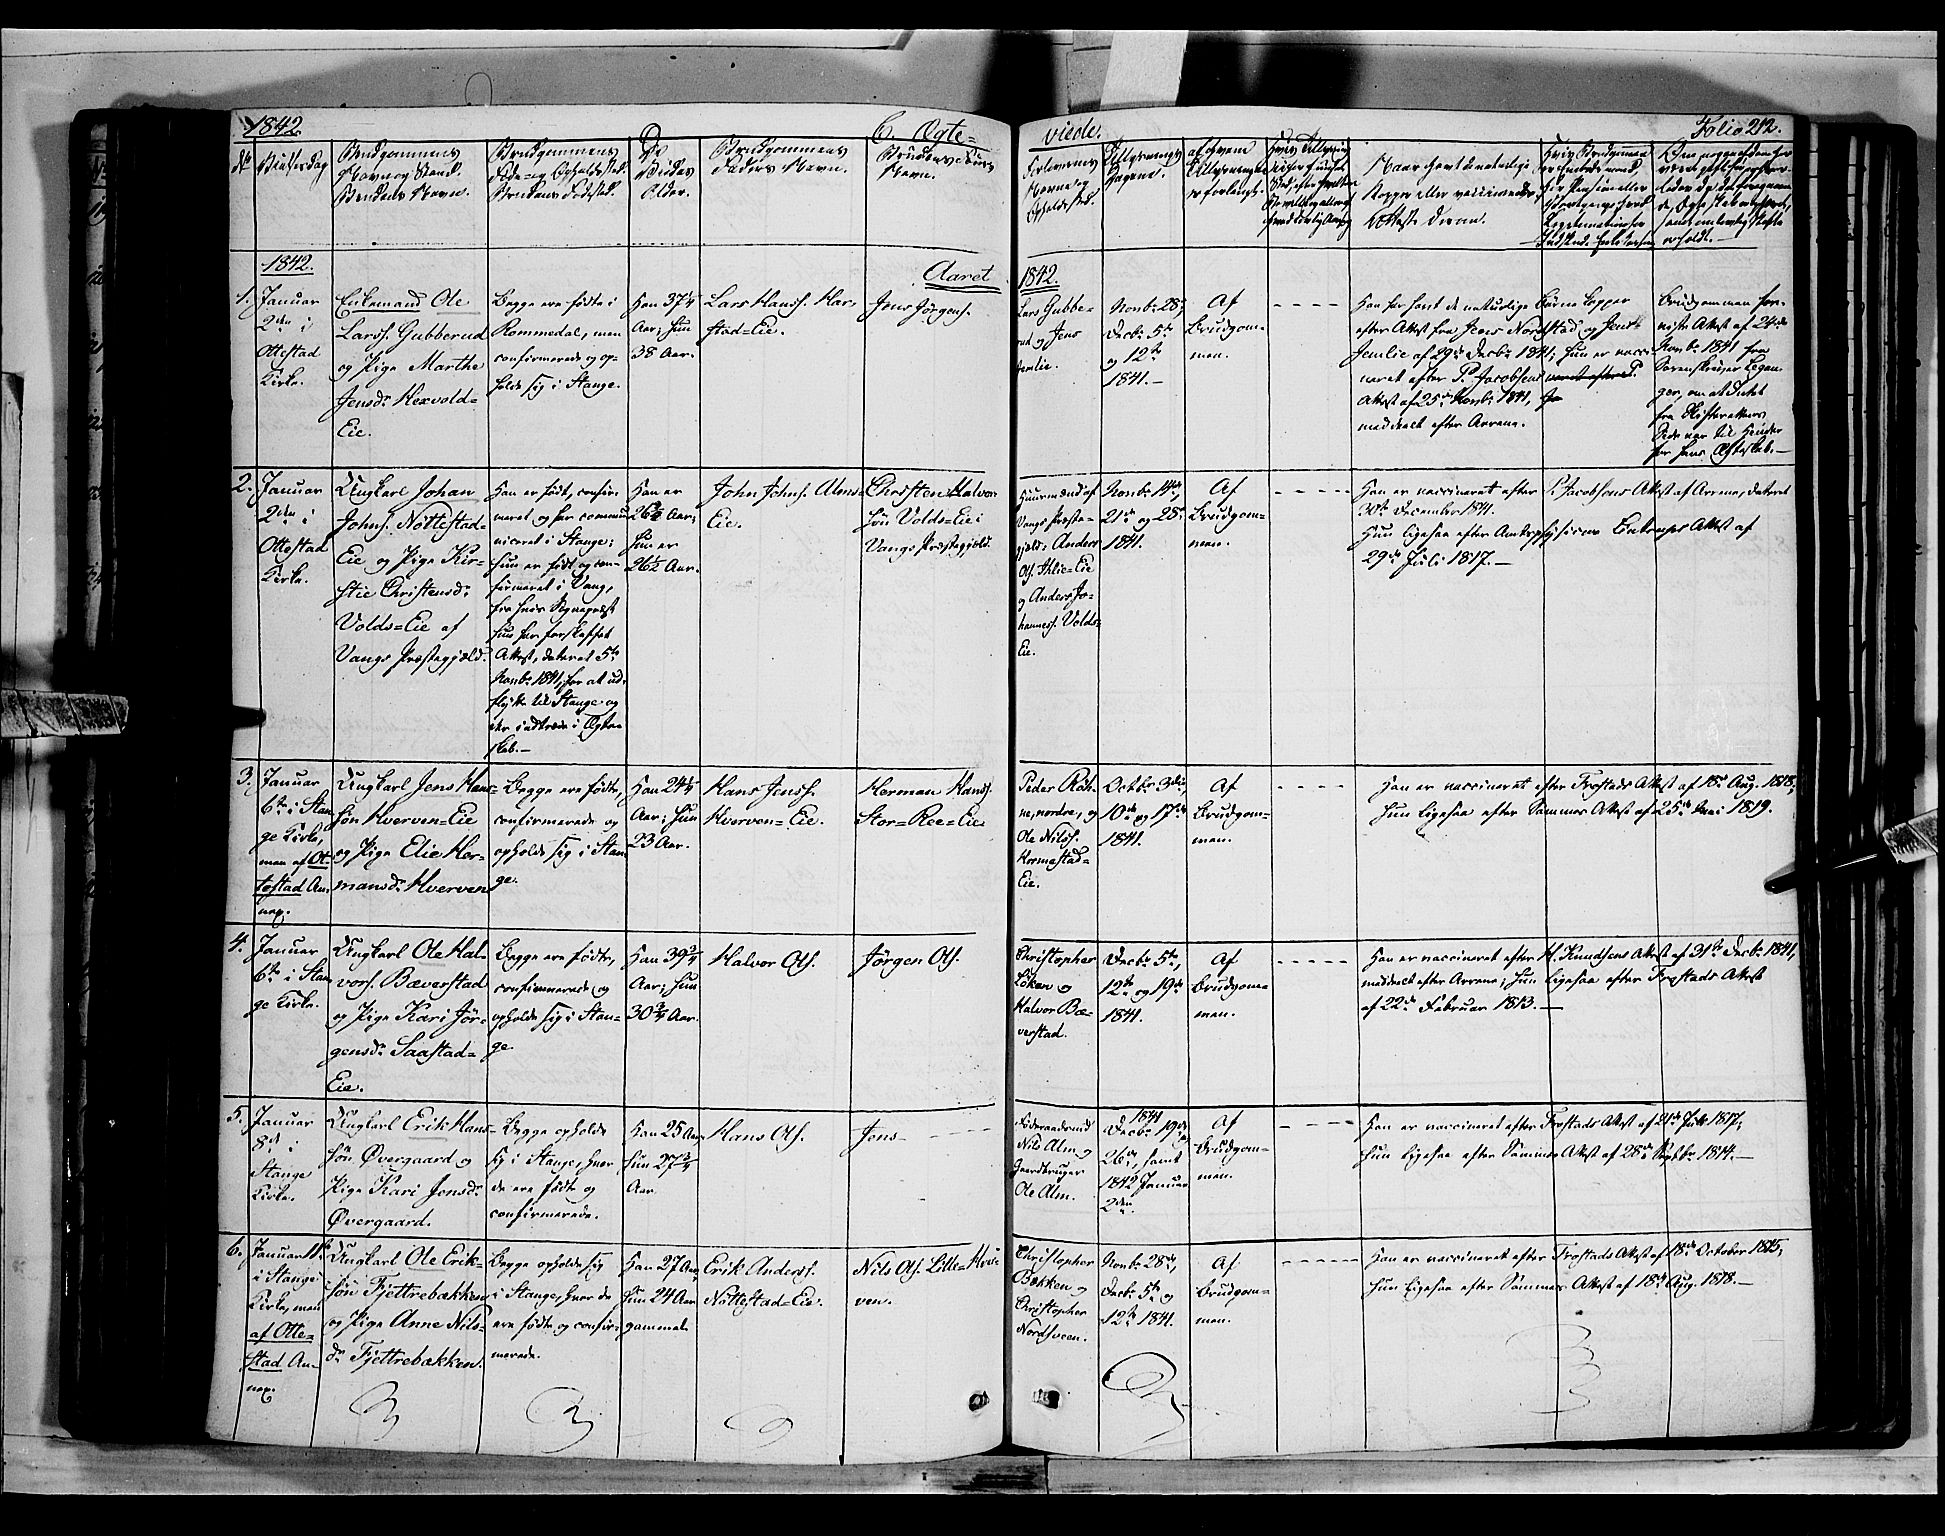 1842.
C. Ægte=
viede.
Folio 212.
No
Vielsesdag
Brudgommens
Navn og Stand.
Brudens Navn.
Brudgommens
Føde- og Opholdssted.
Brudens Fødested.
De
Viedes
Alder.
Brudgommens
Faders Navn.
Brudens Faders
Navn.
Forlovernes
Navne og
Opholdssted.
Tillysnings
Dagene.
af hvem
Tillysningen
er forlangt.
Naar havt de naturlige
Kopper eller vaccinerede;
Attest derom.
1842.
Aaret
1842.
1.
Januar
2den i
Ottestad
Kirke.
Enkemand Ole
Larss. Gubberud
og Pige Marthe
Jensdr Hexvold=
Eie.
Begge ere fødte i
Rommedal, men
confirmerede og op=
holde sig i Stange.
Han 37¼
Aar; hun
38 Aar.
Lars Hanss. Har=
stad=Eie.
Jens Jörgens.
Lars Gubbe=
rud og Jens
Jemlie.
Novbr 28de,
Decbr 5te
og 12te
1841.—
Af
Brudgom=
men.
Han har havt de naturlige Børne Kopper
efter Attest fra Jens Nordstad og Jens
Jemlie af 29de Decbr 1841; hun er vacci=
neret efter P. Jacobsens
Attest af 25de Novbr 1841,
meddeelt efter Arrene.
Brudgommen for=
viste Attest af 24de
Novbr 1841 fra
Sorenskriver
om at Intet
fra Skifterettens
Side var til Hinder
for hans Ægteskab.—
2.
Januar
2den i
Ottestad
Kirke.
Ungkarl Johan
Johns. Nöttestad=
Eie og Pige Kir=
stie Christensdr
Volds=Eie af
Vangs Præstegjæld.
Han er født, confir=
meret og har commu=
niceret i Stange;
hun er født og con=
firmeret i Vang,
fra hvis Sognepræst
hun har forskaffet
Attest, dateret 5te
Novbr 1841, for at ud=
flytte til Stange og
der indtræde i Ægte=
skab.—
Han er
26½ Aar;
hun er
26½ Aar.
John Johns. Alms=
Eie.
Christen Halvor=
sön Volds=Eie i
Vangs Præstegjæld.
Huusmænd af
Vangs Præste=
gjæld: Anders
Ols. Ihlie=Eie
og Anders Jo=
hanness. Volds=
Eie.
Novbr 14de,
21de og 28de
1841.
Af
Brudgom=
men.
Han er vaccineret efter P. Jacobsens Attest af Arrene, dateret
30te December 1841.
Hun ligesaa efter Amtsphysicus Attest af
29de Juli 1817.—
3.
Januar
6te i Stan=
ge Kirke,
men af Ot=
testad An=
nex.
Ungkarl Jens Hans=
sön Hverven=Eie
og Pige Elie Her=
mansdr Hverven
Begge ere fødte,
confirmerede og
opholde sig i Stan=
ge.
Han 24¼
Aar; hun
23 Aar.
Hans Jenss.
Hverven=Eie.
Herman Hanss.
Stor=Ree=Eie.
Peder Roh=
ne, nordre, og
Ole Nilss.
Kormestad=
Eie.
Octbr 3die,
10de og 17de
1841.
Af
Brudgom=
men.
Han er vaccineret efter Frostads Attest af 18de Aug. 1818;
hun ligesaa efter Sammes Attest af 25de Mai 1819.
4.
Januar
6te i Stan=
ge Kirke.
Ungkarl Ole Hal=
vors. Bæverstad
og Pige Kari Jör=
gensdr Saastad=
Eie.
Begge ere fødte,
confirmerede og
opholde sig i Stan=
ge.
Han 39¾
Aar; hun
30¾ Aar.
Halvor Ols.
Jørgen Ols.
Christopher
Löken og
Halvor Bæ=
verstad.
Decbr 5te,
12te og 19de
1841.
Af
Brudgom=
men.
Han er vaccineret efter H. Knudsens Attest af 31te Decbr 1841,
meddeelt efter Arrene; hun ligesaa efter Frostads Attest
af 22de Februar 1813.—
5.
Januar
8de i
Stange
Kirke.
Ungkarl Erik Hans=
sön Øvergaard og
Pige Kari Jensdr
Øvergaard.
Begge opholde
sig i Stange, hvor
de ere fødte og
confirmerede.
Han 25 Aar,
hun 27¾
Aar.
Hans Ols.
Jens
Nils Alm og
Gaardbruger
Ole Alm.
1841
Decbr 19de,
26de, samt
1842 Januar
2den.
Af
Brudgom=
men.
Han er vaccineret efter Frostads Attest af 21de Juli 1817;
hun ligesaa efter Sammes Attest af 28de Septbr 1814.—
6.
Januar 11te
i Stange
Kirke, men
af Otte=
stad An=
nex.
Ungkarl Ole Erik=
sön Fjettrebækken
og Pige Anne Nils=
dr Fjettrebækken.
Begge opholde sig
i Stange, hvor de
ere fødte og confir=
merede.
Han 27 Aar,
hun 24 Aar
gammel.
Erik Anderss.
Nöttestad=Eie.
Nils Ols. Lille=Hver=
ven.
Christopher
Bækken og
Christopher
Nordsveen.
Novbr 28de,
Decbr 5te og
12te 1841.
Af
Brudgom=
men.
Han er vaccineret efter Frostads Attest af 18de October 1815;
hun ligesaa efter Sammes Attest af 18de Aug. 1818.—